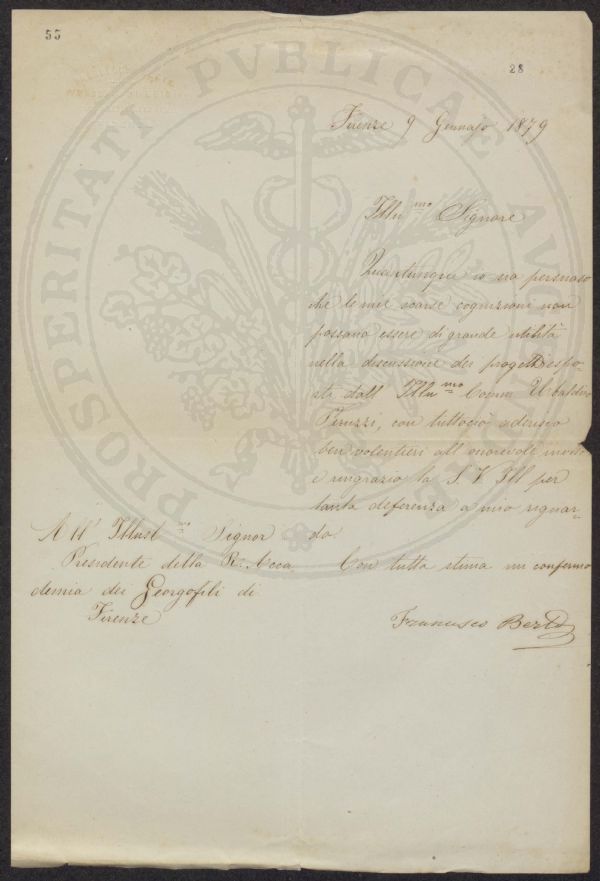 55
28
PROSPERITATI PVBLICAE AVGENDAE
Firenze 9 Gennajo 1879
Illu mo Signore
Quantunque io sia persuaso
che le mie scarse cognizioni non
possano essere di grande utilità
nella discussione dei progetti espo-
sti dall' Illu mo Comm Ubaldino
Peruzzi, con tuttociò aderisco
ben volentieri all' onorevole invito
e ringrazio la S. V. Ill per
tanta deferenza a mio riguar-
do.
Con tutta stima mi confermo
Francesco
All' Illust mo Signor
Presidente della R. Acca
demia dei Georgofili di
Firenze